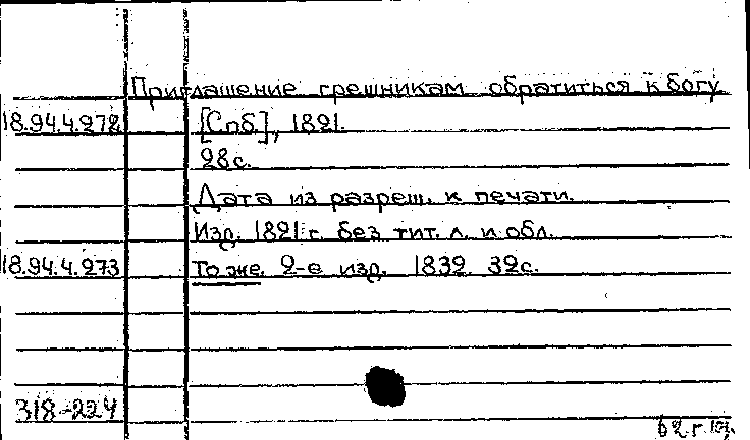 Приглашение грешникам обратиться к богу
18.94.4.272 [Спб.], 1821.
28 с.
Дата из разреш. к печати.
Изд. 1821 г. без тит. л. и обл.
18.94.4.273 То же. 2-е изд. 1832. 32 с.
318-224
62 г.